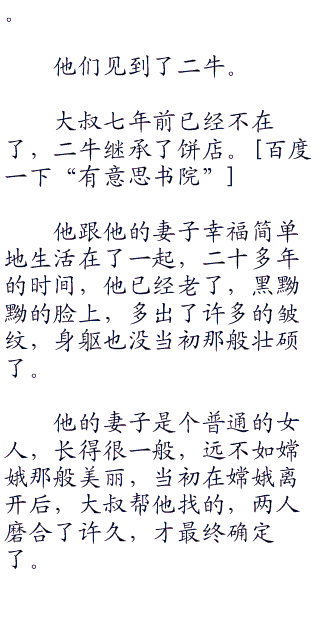 。
他们见到了二牛。
大叔七年前已经不在
了，二牛继承了饼店。[百度
一下“有意思书院”]
他跟他的妻子幸福简单
地生活在了一起，二十多年
的时间，他已经老了，黑黝
黝的脸上，多出了许多的皱
纹，身躯也没当初那般壮硕
了。
他的妻子是个普通的女
人，长得很一般，远不如嫦
娥那般美丽，当初在嫦娥离
开后，大叔帮他找的，两人
磨合了许久，才最终确定
了。